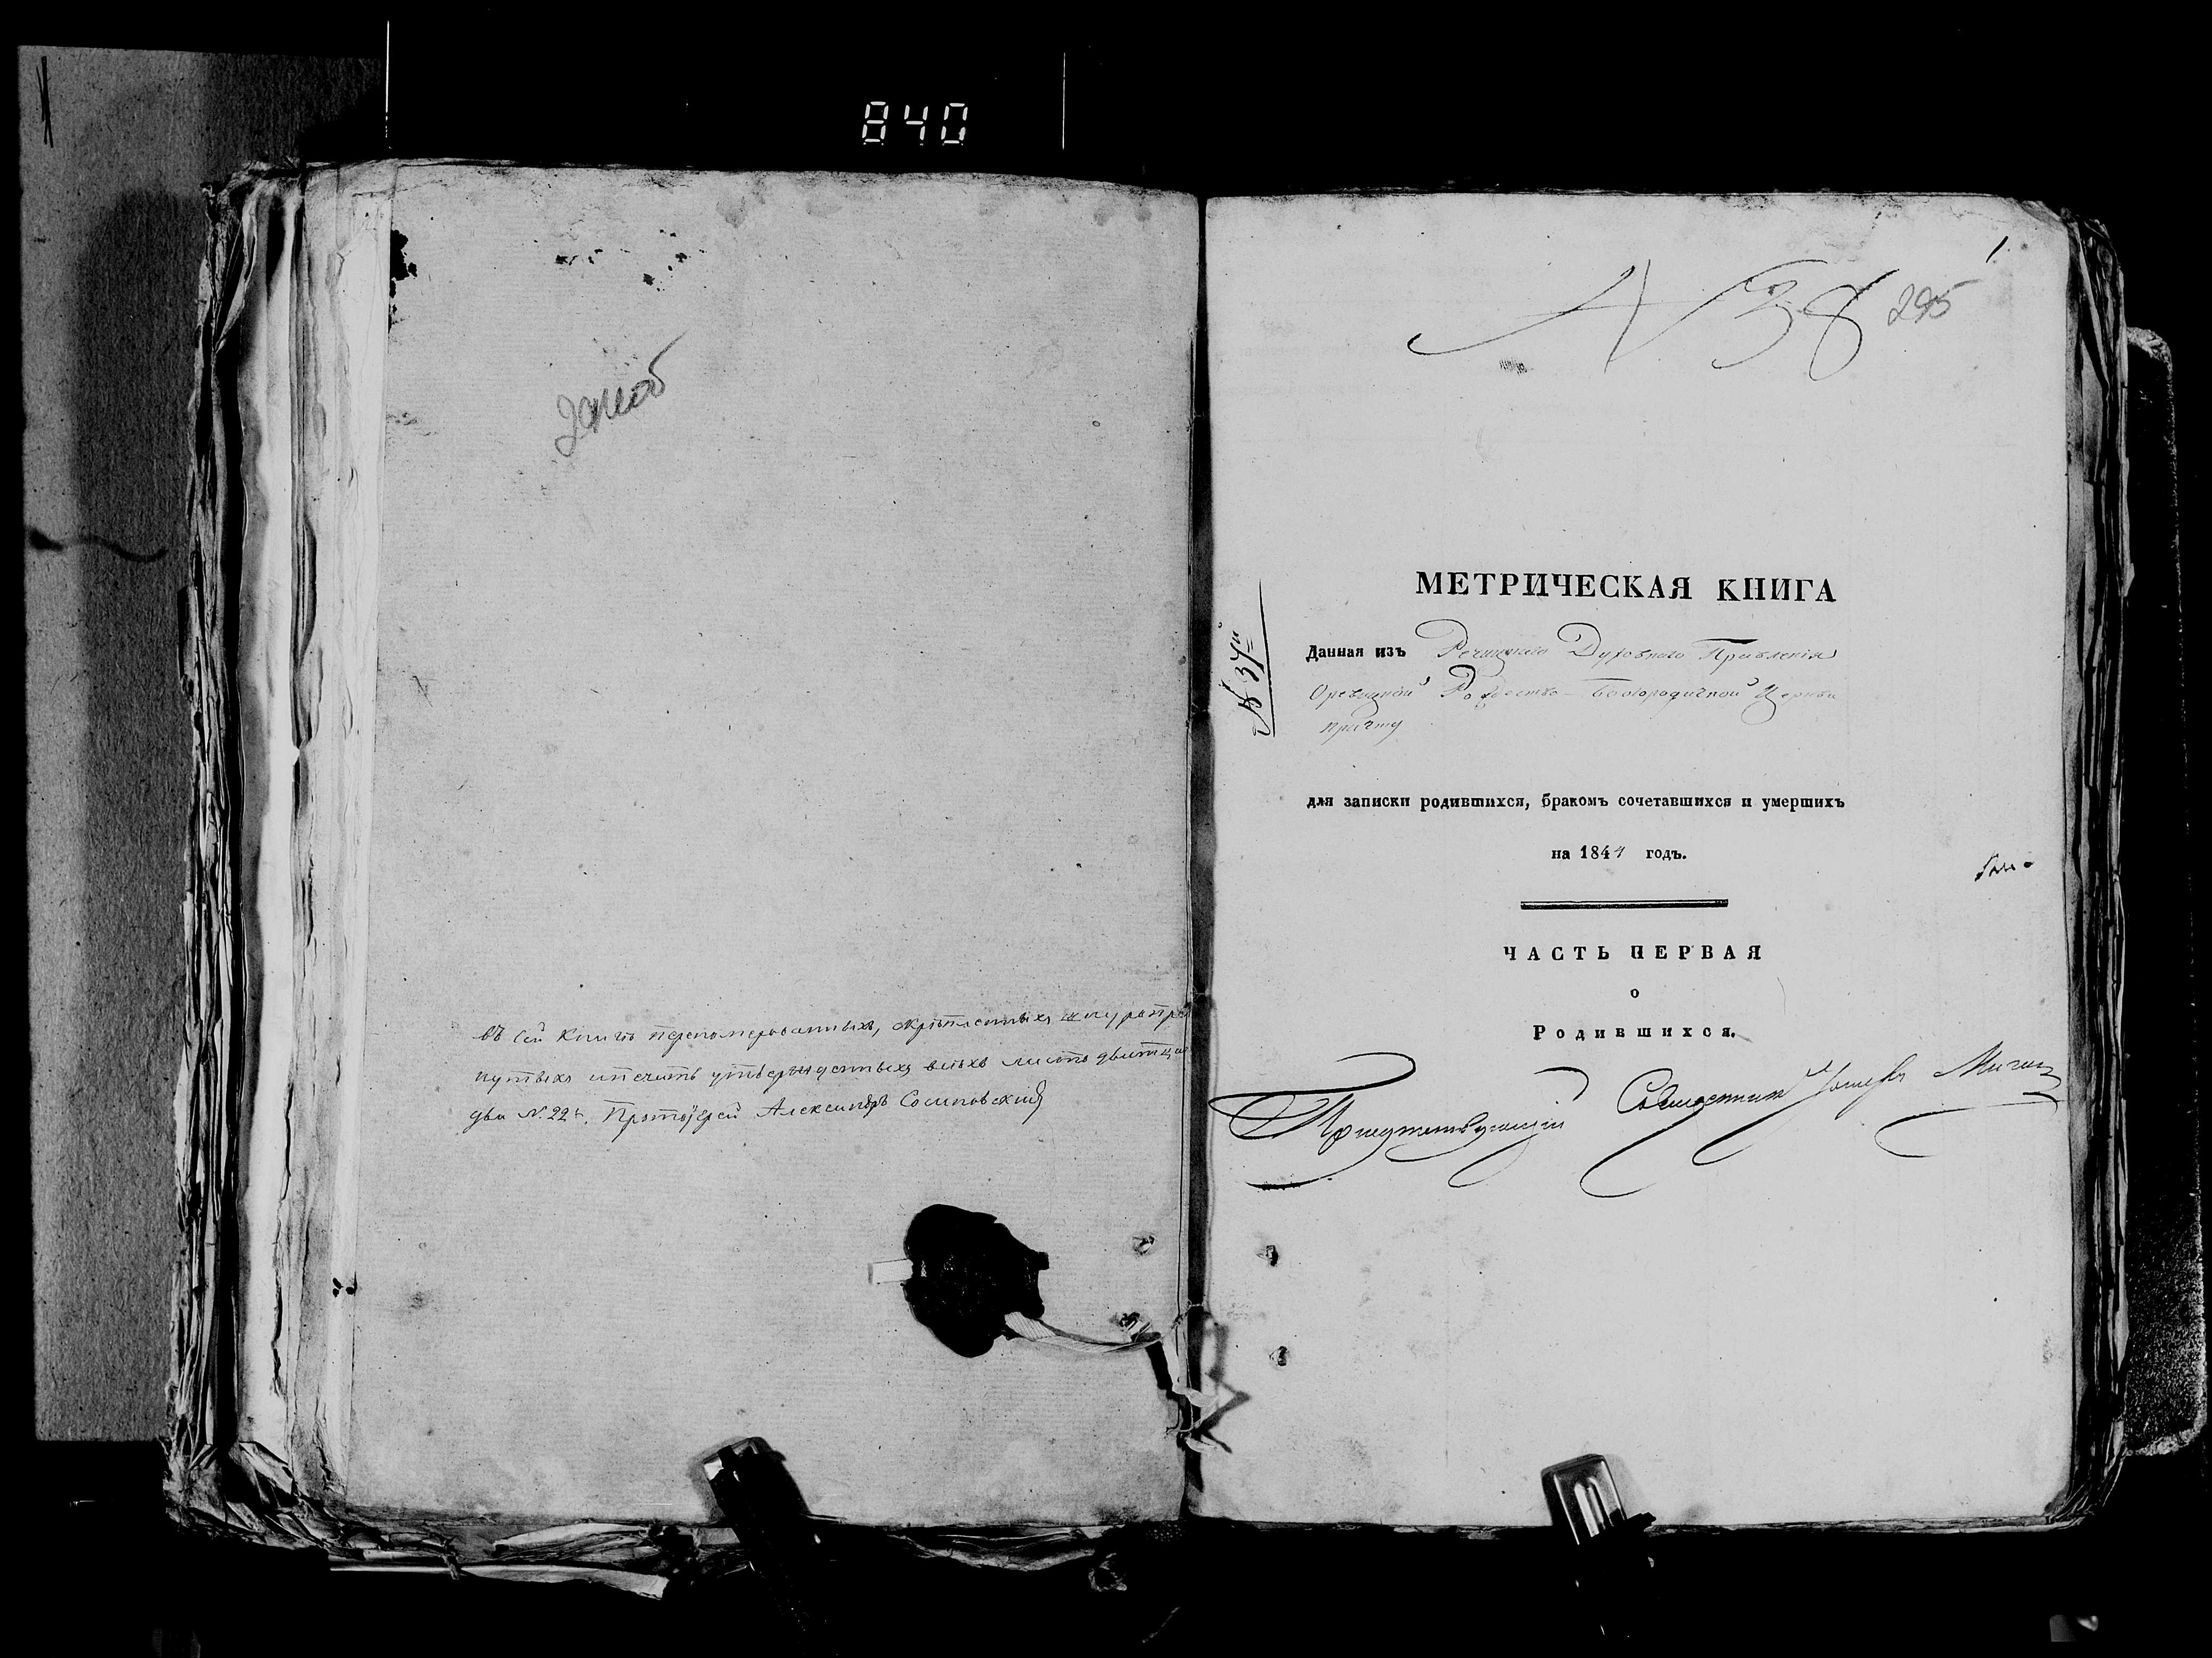 840
294об
въ сей книгѣ перономерованныхъ, скрѣпленныхъ
и печатью утвержденныхъ всѣхъ листъ
два № 22й. Протоіерей Александръ Сосиновскій
1
N 38 295
МЕТРИЧЕСКАЯ КНИГА
№ 37й
Данная изъ Речицкаго Духовнаго Правленія
Оревицкой Рождество-Богородичной Церкви
причту
для записки родившихся, бракомъ сочетавшихся и умершихъ
на 1844 годъ.
ЧАСТЬ ПЕРВАЯ
о
Родившихся.
Присутствующій Священникъ